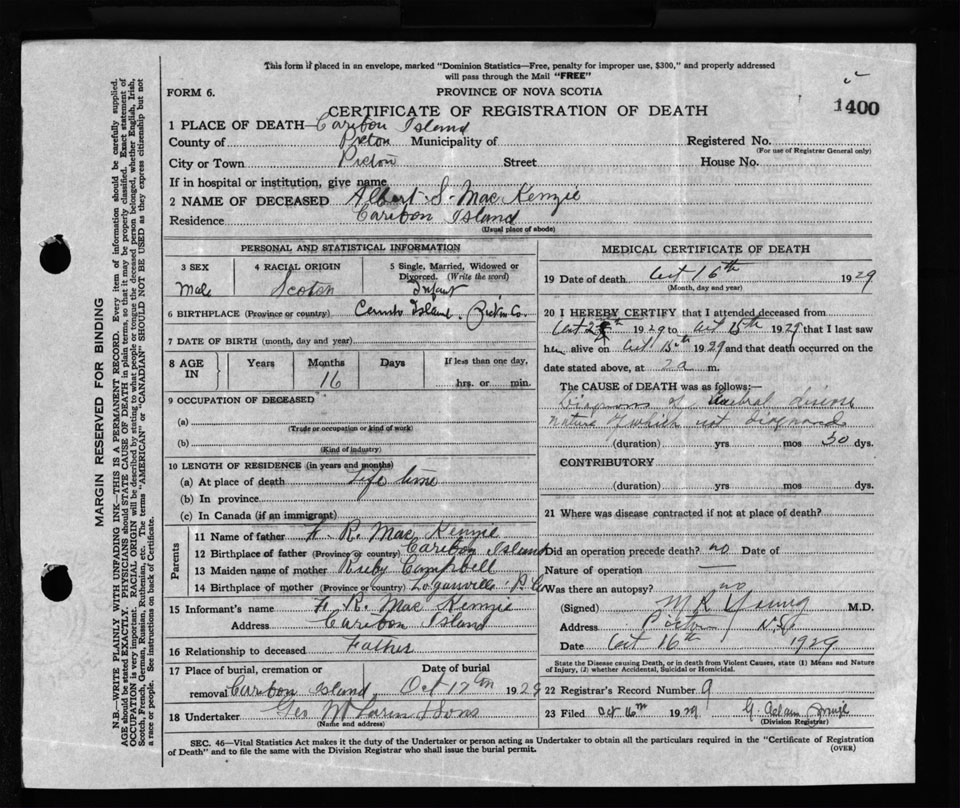 This form if placed in an envelope, marked "Dominion Statistics—Free, penalty for improper use, $300," and properly addressed
will pass through the Mail "FREE"
FORM 6.
PROVINCE OF NOVA SCOTIA
1400
CERTIFICATE OF REGISTRATION OF DEATH
1 PLACE OF DEATH—Caribou Island
County of Pictou Municipality of Registered No.
(For use of Registrar General only)
City or Town Pictou Street House No.
If in hospital or institution, give name
2 NAME OF DECEASED Albert S. MacKenzie
Residence Caribou Island
(Usual place of abode)
PERSONAL AND STATISTICAL INFORMATION
3 SEX 4 RACIAL ORIGIN 5 Single, Married, Widowed or
Divorced. (Write the word)
Male Scotch Infant
6 BIRTHPLACE (Province or country) Caribou Island. Pictou Co.
7 DATE OF BIRTH (month, day and year)
8 AGE IN Years Months Days If less than one day,
16 hrs. or min.
9 OCCUPATION OF DECEASED
(a)
(Trade or occupation or kind of work)
(b)
(Kind of industry)
10 LENGTH OF RESIDENCE (in years and months)
(a) At place of death Life time
(b) In province
(c) In Canada (if an immigrant)
Parents
11 Name of father R. MacKenzie
12 Birthplace of father (Province or country) Caribou Island
13 Maiden name of mother Ruby Campbell
14 Birthplace of mother (Province or country) Loganville P. Co
15 Informant's name R. MacKenzie
Address Caribou Island
16 Relationship to deceased Father
17 Place of burial, cremation or Date of burial
removal Caribou Island Oct 17th 1929
18 Undertaker Geo & Sons
(Name and address)
MEDICAL CERTIFICATE OF DEATH
19 Date of death Oct 16th 1929
(Month, day and year)
20 I HEREBY CERTIFY that I attended deceased from
Oct 1929 to Oct 15th 1929 that I last saw
him alive on Oct 15th 1929 and that death occurred on the
date stated above, at 2 a m.
The CAUSE OF DEATH was as follows:—
Diagnosis of disease
nature of which not diagnosed
(duration) yrs mos 30 dys.
CONTRIBUTORY
(duration) yrs mos dys.
21 Where was disease contracted if not at place of death?
Did an operation precede death? no Date of
Nature of operation —
Was there an autopsy? no
(Signed) M R Young M.D.
Address Pictou N.S.
Date Oct 16th 1929
State the Disease causing Death, or in death from Violent Causes, state (1) Means and Nature
of Injury, (2) whether Accidental, Suicidal or Homicidal.
22 Registrar's Record Number 9
23 Filed Oct 16th 1929 G.
(Division Registrar)
SEC. 46—Vital Statistics Act makes it the duty of the Undertaker or person acting as Undertaker to obtain all the particulars required in the "Certificate of Registration
of Death" and to file the same with the Division Registrar who shall issue the burial permit.
(OVER)
MARGIN RESERVED FOR BINDING
N.B.—WRITE PLAINLY WITH UNFADING INK—THIS IS A PERMANENT RECORD. Every item of information should be carefully supplied.
AGE should be stated EXACTLY. PHYSICIANS should STATE CAUSE OF DEATH in plain terms, so that it may be properly classified. Exact statement of
OCCUPATION is very important. RACIAL ORIGIN will be described by stating to what people or tongue the deceased person belonged, whether English, Irish,
Scotch, French, German, Russian, Ruthenian, etc. The terms "AMERICAN" or "CANADIAN" SHOULD NOT BE USED as they express citizenship but not
a race or people. See instructions on back of Certificate.